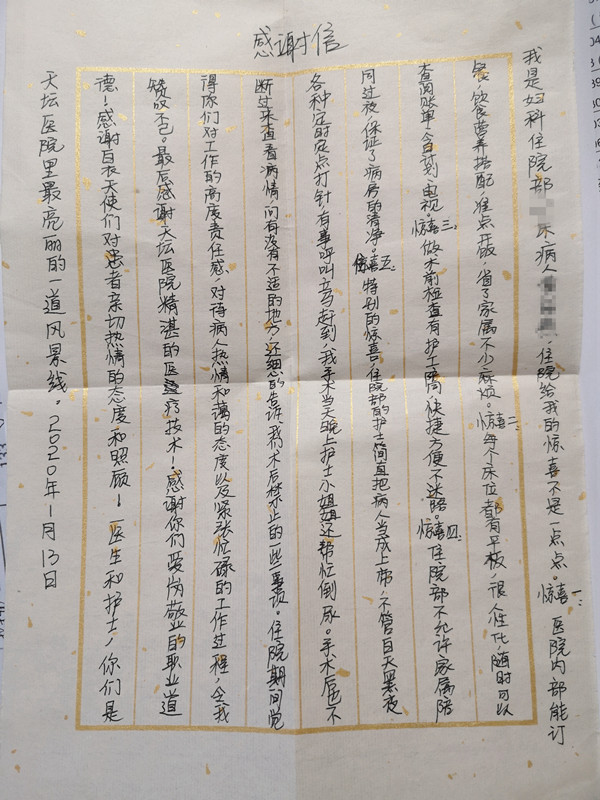 感谢信
我是妇科住院部床病人，住院给我的惊喜不是一点点。惊喜一：医院内部能订
餐，饮食营养搭配准点开饭，省了家属不少麻烦。惊喜二：每个床位都有平板，很人性化，随时可以
查阅账单，合计划，电视。惊喜三：做术前检查有护工陪同，快捷方便不迷路。惊喜四：住院部不允许家属陪
同过夜，保证了病房的清净。惊喜五：特别的惊喜，住院部的护士简直把病人当成上帝，不管白天黑夜
各种定时定点打针，有事呼叫立马赶到，我手术当天晚上护士小姐姐还帮忙倒尿。手术后也不
断过来查看病情问有没有不适的地方，还细心的告诉我术后禁止的一些事项。住院期间觉
得你们对工作的高度责任感。对待病人热情和蔼的态度以及紧张忙碌的工作过程，令我
赞叹不已。最后感谢天坛医院精湛的医疗技术！感谢你们爱岗敬业的职业道
德！感谢白衣天使们对患者亲切热情的态度和照顾！医生和护士，你们是
天坛医院里最亮丽的一道风景线。2020年1月13日